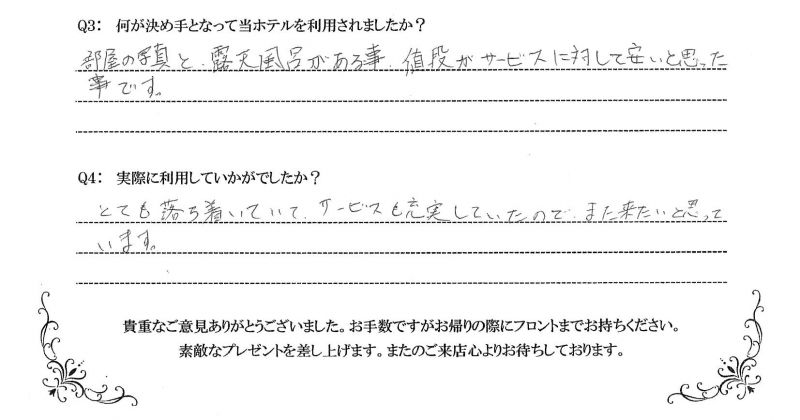 Q3： 何が決め手となって当ホテルを利用されましたか？
部屋の写真と、露天風呂がある事、値段がサービスに対して安いと思った
事です。
Q4： 実際に利用していかがでしたか？
とても落ち着いていて、サービスも充実していたので、また来たいと思って
います。
貴重なご意見ありがとうございました。お手数ですがお帰りの際にフロントまでお持ちください。
素敵なプレゼントを差し上げます。またのご来店心よりお待ちしております。